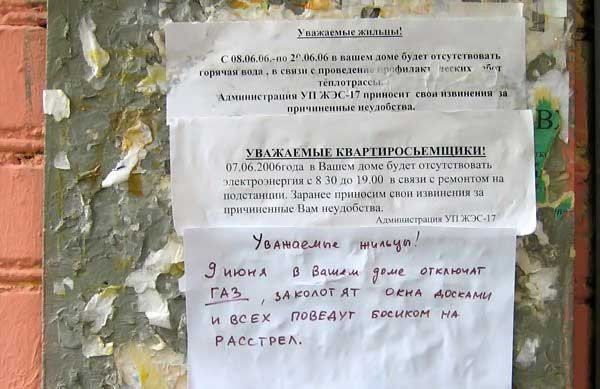 Уважаемые жильцы!
С 08.06.06.-по 20.06.06 в вашем доме будет отсутствовать
горячая вода , в связи с проведение профилактических работ
теплотрассы.
Администрация УП ЖЭС-17 приносит свои извинения за
причиненные неудобства.
УВАЖАЕМЫЕ КВАРТИРОСЬЕМЩИКИ!
07.06.2006года в Вашем доме будет отсутствовать
электроэнергия с 8 30 до 19.00 в связи с ремонтом на
подстанции. Заранее приносим свои извинения за
причиненные Вам неудобства.
Администрация УП ЖЭС-17
Уважаемые жильцы!
9 июня в Вашем доме отключат
ГАЗ , заколотят окна досками
и всех поведут босиком на
расстрел.
В